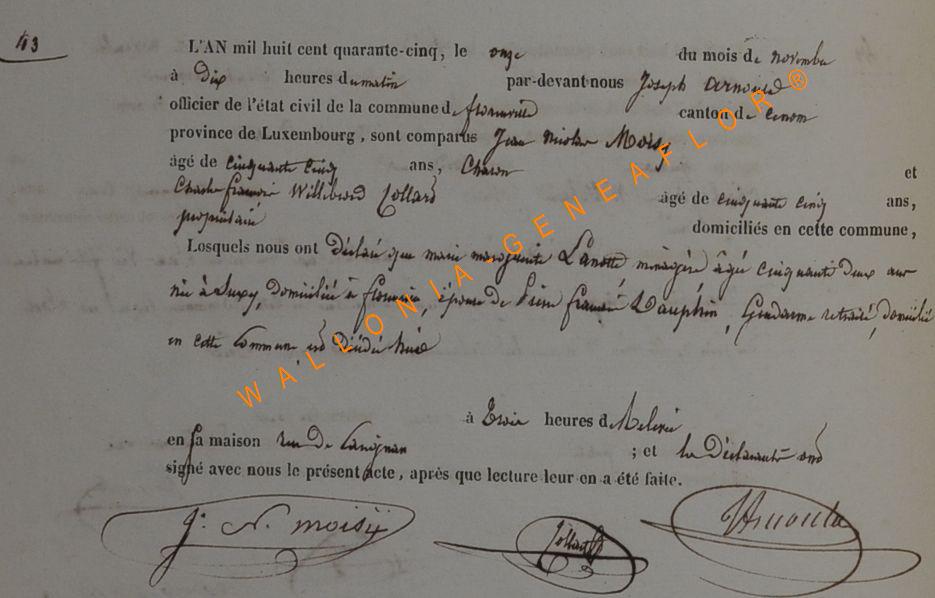 43
L'AN mil huit cent quarante-cinq, le onze du mois de novembre
à Dix heures du matin par-devant nous Joseph Arnould
officier de l'état civil de la commune de florenville canton de
province de Luxembourg, sont comparus Jean Nicolas Moisy
âgé de cinquante cinq ans, Charon et
Charles françois Willibrord Collard âgé de cinquante cinq ans,
propriétaire domiciliés en cette commune,
Lesquels nous ont déclaré que marie marguerite Lanotte ménagère âgée cinquante deux ans
née à Suxy, domiciliée à florenville, épouse de Pierre françois Dauphin, Gendarme retraité, domicilié
en cette Commune est décédée hier
à trois heures de Relevée
en sa maison rue de Carignan ; et les Déclarants ont
signé avec nous le présent acte, après que lecture leur en a été faite.
J. N. moisÿ Collard Arnould
WALLONIA_GENEAFLOR®